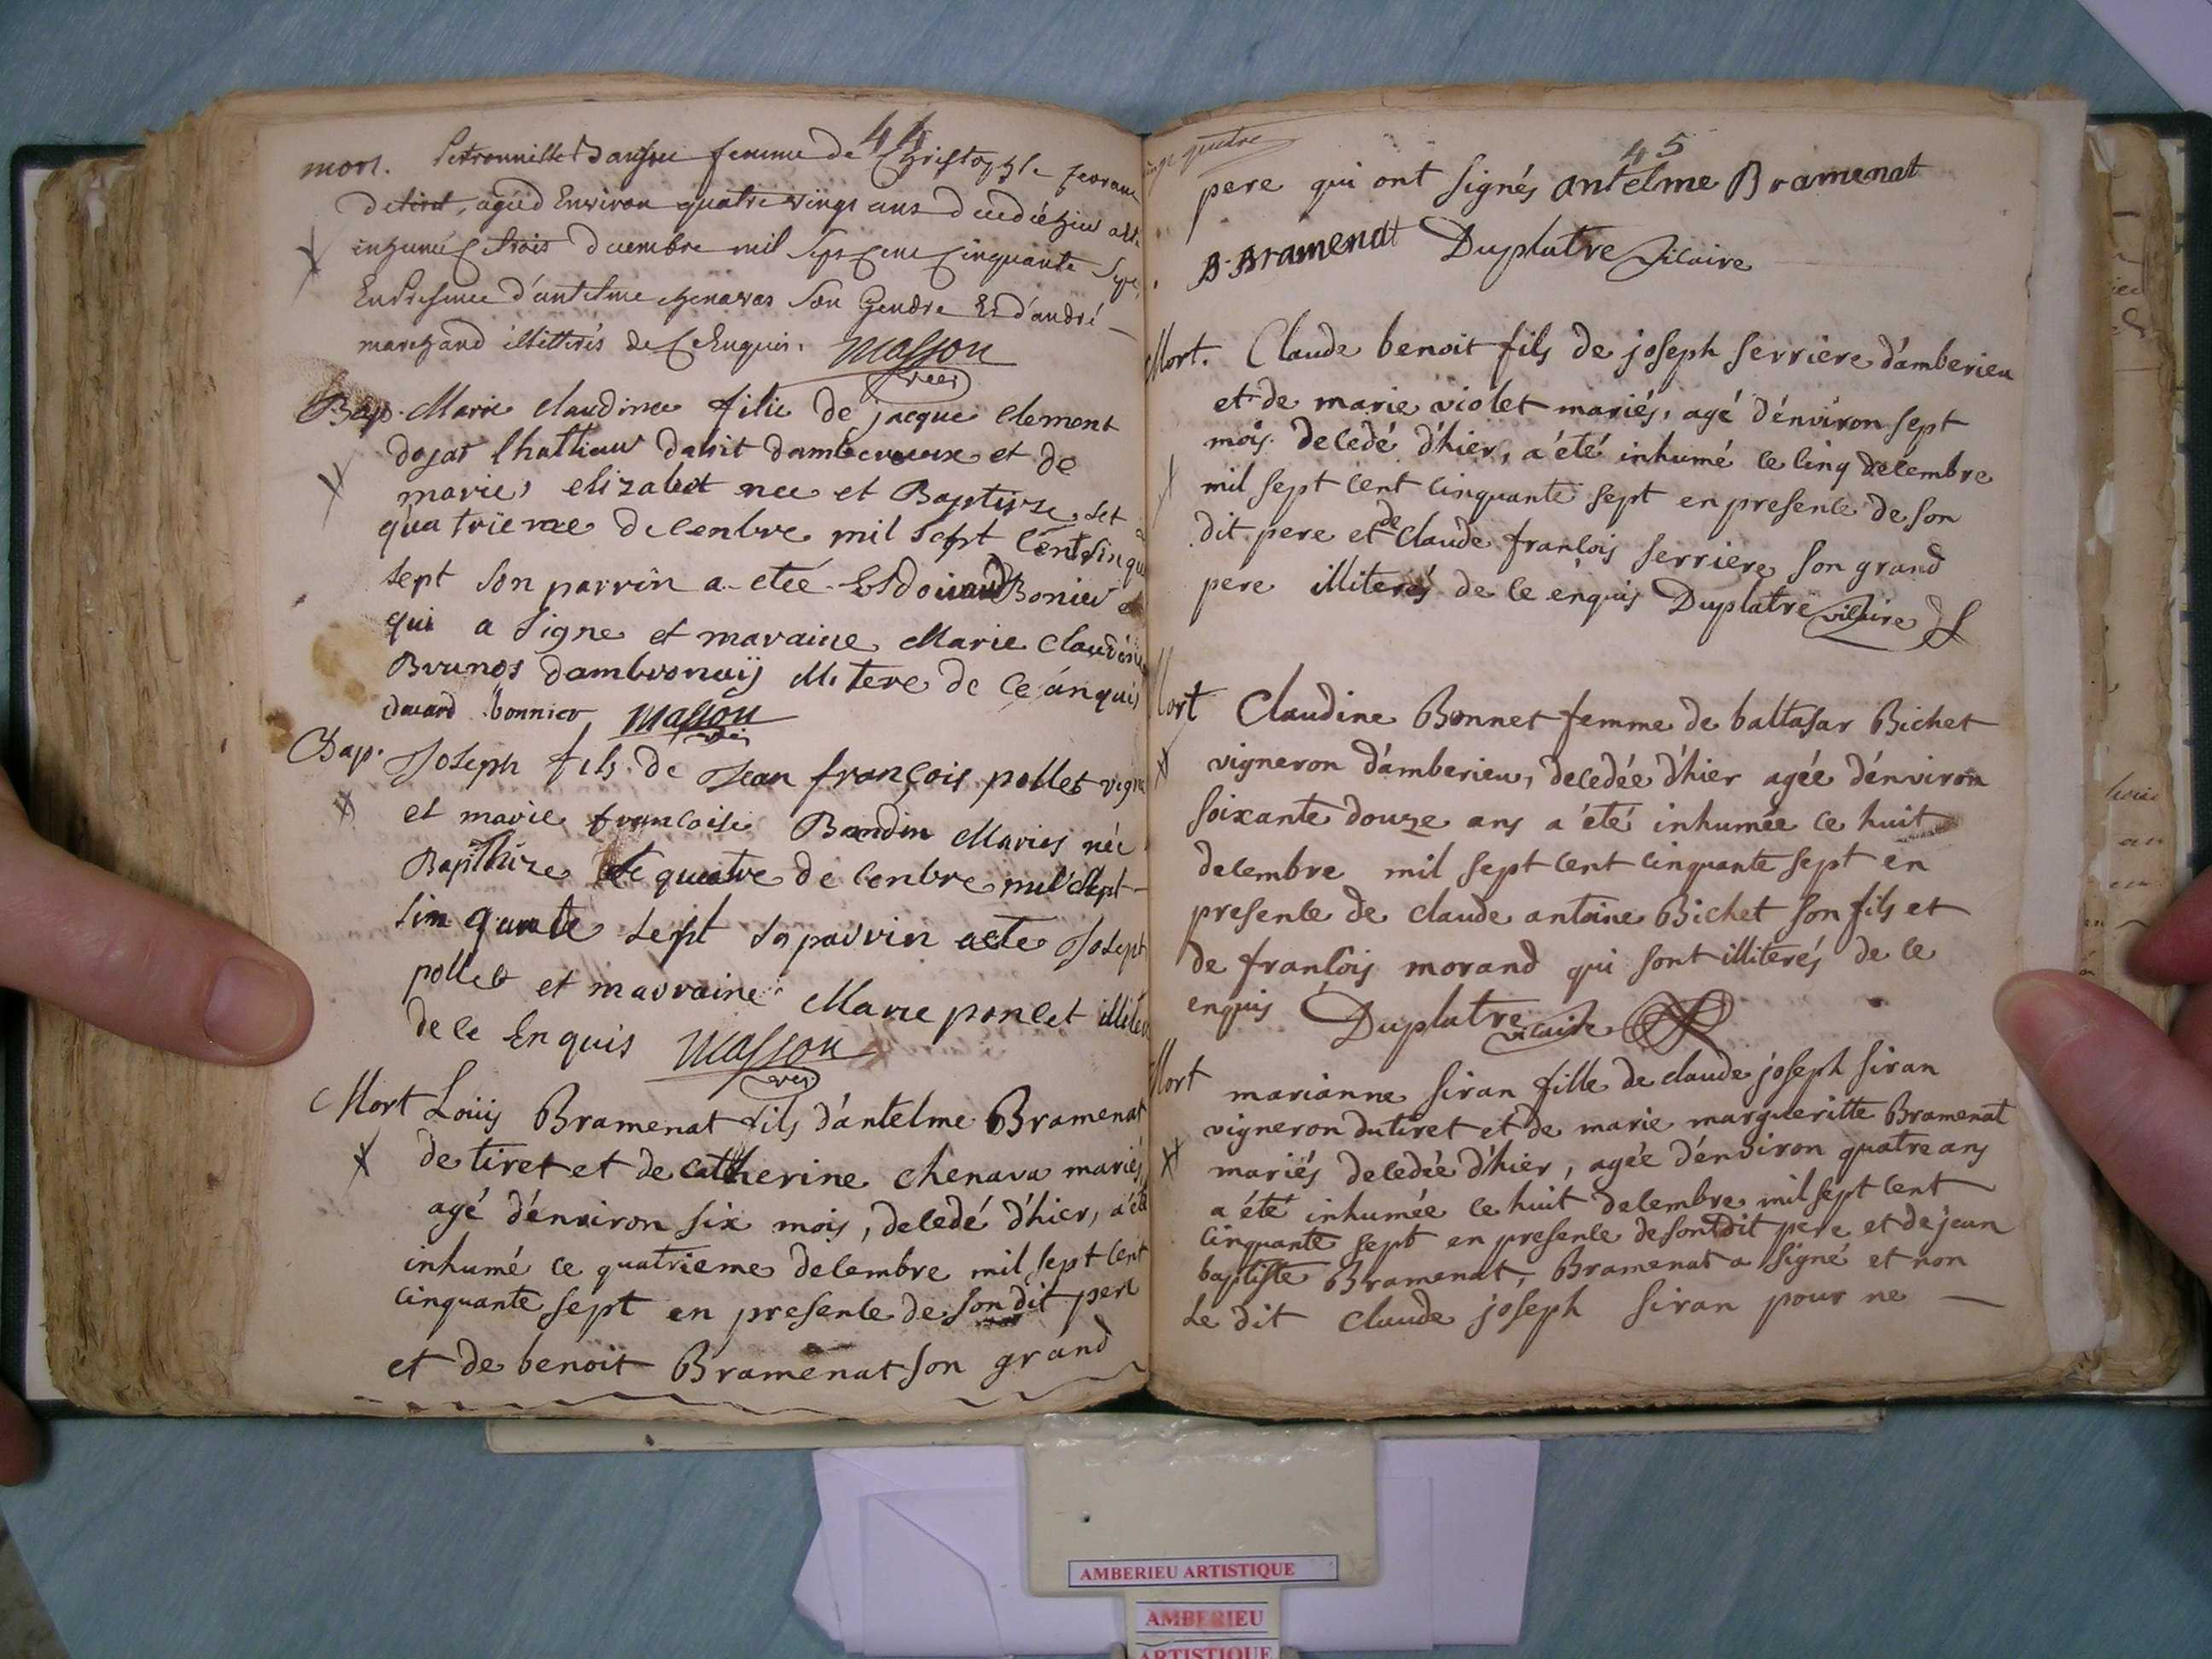 44
mort. femme de Christophle
De tiret, agée d Environ quatre vings ans
inhumé Ce trois decembre mil sept Cent Cinquante sept,
En Presence d'antelme chenavas son Gendre Et d'andré
marchand illitérés de Ce Enquis. Masson
Bap. Marie claudine fille de jacque Clement
et de
marie, elizabet nee et Baptisze Let
quatrieme decenbre mil sept Cent sinqu
sept son parrin a etée Edouard Bonier
qui a signe et maraine Marie Claudine
Brunos dambronaÿ illitere de Ce anquis
douard bonnier Masson
Bap. Joseph fils de Jean françois pollet vigne
et marie francoise Baudin Maries née
Bapthize le quatre de cenbre mil sept
sinquante sept so parrin aete Josept
pollet et marraine Marie poncet illiter
de ce Enquis Masson
Mort Loüis Bramenat fils d'antelme Bramenat
de tiret et de catherine chenava mariés
agé d'environ six mois, decedé d'hier, a été
inhumé ce quatrieme decembre mil sept cent
cinquante sept en presence de son dit pere
et de benoit Bramenat son grand
45
pere qui ont signés antelme Bramenat
B. Bramenat Duplatre vicaire
Mort. Claude benoit fils de joseph serriere d'amberieu
et de marie violet mariés, agé d'environ sept
mois. decedé d'hier, a été inhumé ce cinq decembre
mil sept cent cinquante sept en presence de son
dit pere et de claude francois serriere son grand
pere illiterés de ce enquis Duplatre vicaire
Mort Claudine Bonnet femme de baltasar Bichet
vigneron d'amberieu, decedée d'hier agée d'environ
soixante douze ans a été inhumée ce huit
decembre mil sept cent cinquante sept en
presence de claude antoine Bichet son fils et
de francois morand qui sont illiterés de ce
enquis Duplatre vicaire
Mort marianne siran fille de claude joseph siran
vigneron du tiret et de marie margueritte Bramenat
mariés decedée d'hier, agée d'environ quatre ans
a été inhumée ce huit decembre mil sept cent
cinquante sept en presence de sondit pere et de jean
baptiste Bramenat, Bramenat a signé et non
Le dit claude joseph siran pour ne
AMBERIEU ARTISTIQUE
AMBERIEU
ARTISTIQUE